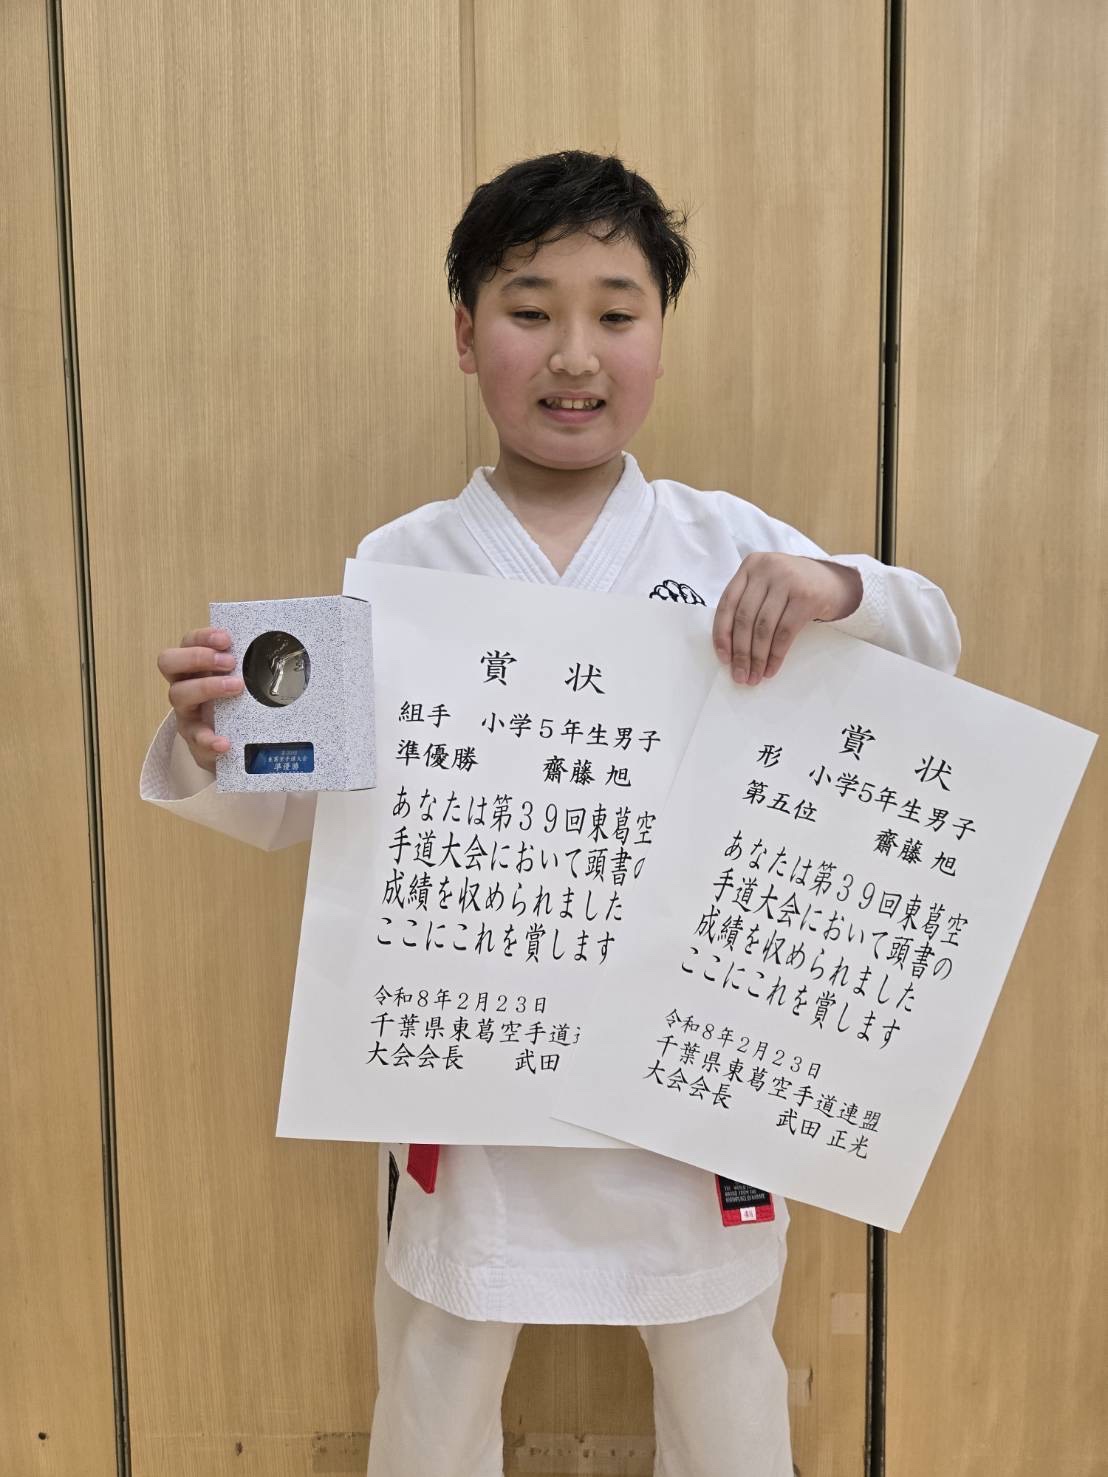 第39回
東葛空手道大会
準優勝
賞　状
組手　小学５年生男子
準優勝　　齋藤 旭
あなたは第３９回東葛空
手道大会において頭書の
成績を収められました
ここにこれを賞します
令和８年２月２３日
千葉県東葛空手道
大会会長　　武田
賞　状
形　小学5年生男子
第五位　　齋藤 旭
あなたは第３９回東葛空
手道大会において頭書の
成績を収められました
ここにこれを賞します
令和８年２月２３日
千葉県東葛空手道連盟
大会会長　　武田 正光